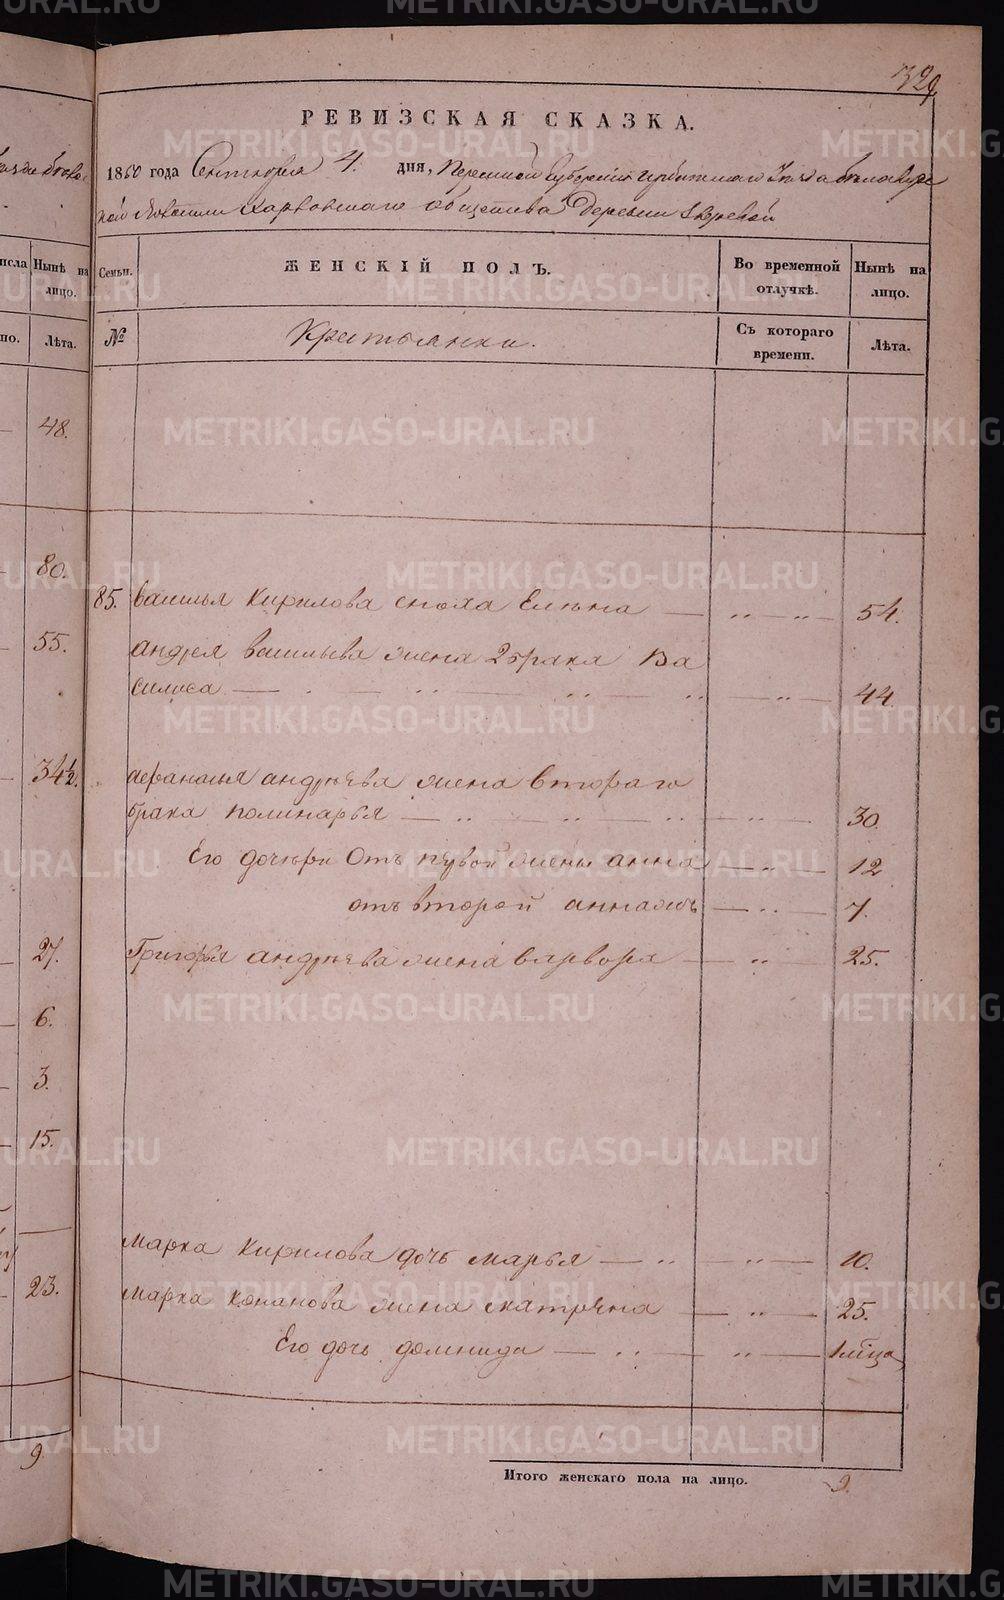 329
РЕВИЗСКАЯ СКАЗКА.
1850 года Сентября 4. дня, Пермской Губернии Ирбитскаго Уезда Белослуд
ской волости Харловскаго общества Деревни
Семьи.
ЖЕНСКІЙ ПОЛЪ.
Во временной отлучкѣ.
Нынѣ на лицо.
№
Крестьянки.
Съ котораго времени.
Лѣта.
85. Василья Кирилова сноха Елена — „ „ — 54.
Андрея Васильева жена 2 брака Ва
силиса — „ — 44.
Афанасья Андрѣева жена втораго
брака Полинарья — „ — 30.
Его дочѣри Отъ первой жены Анна — „ — 12
отъ второй Анна жъ — „ — 7.
Григорья Андрѣева жена Варвора — „ — 25.
Марка Кирилова дочь Марья — „ — 10.
Марка Конанова жена Екатрена — „ — 25.
Его дочь Домнида — „ — 1 мѣсца
Итого женскаго пола на лицо. 9.
исла
Нынѣ на лицо.
но.
Лѣта.
48.
80.
55.
34½.
27.
6.
3.
15.
23.
9.
METRIKI.GASO-URAL.RU